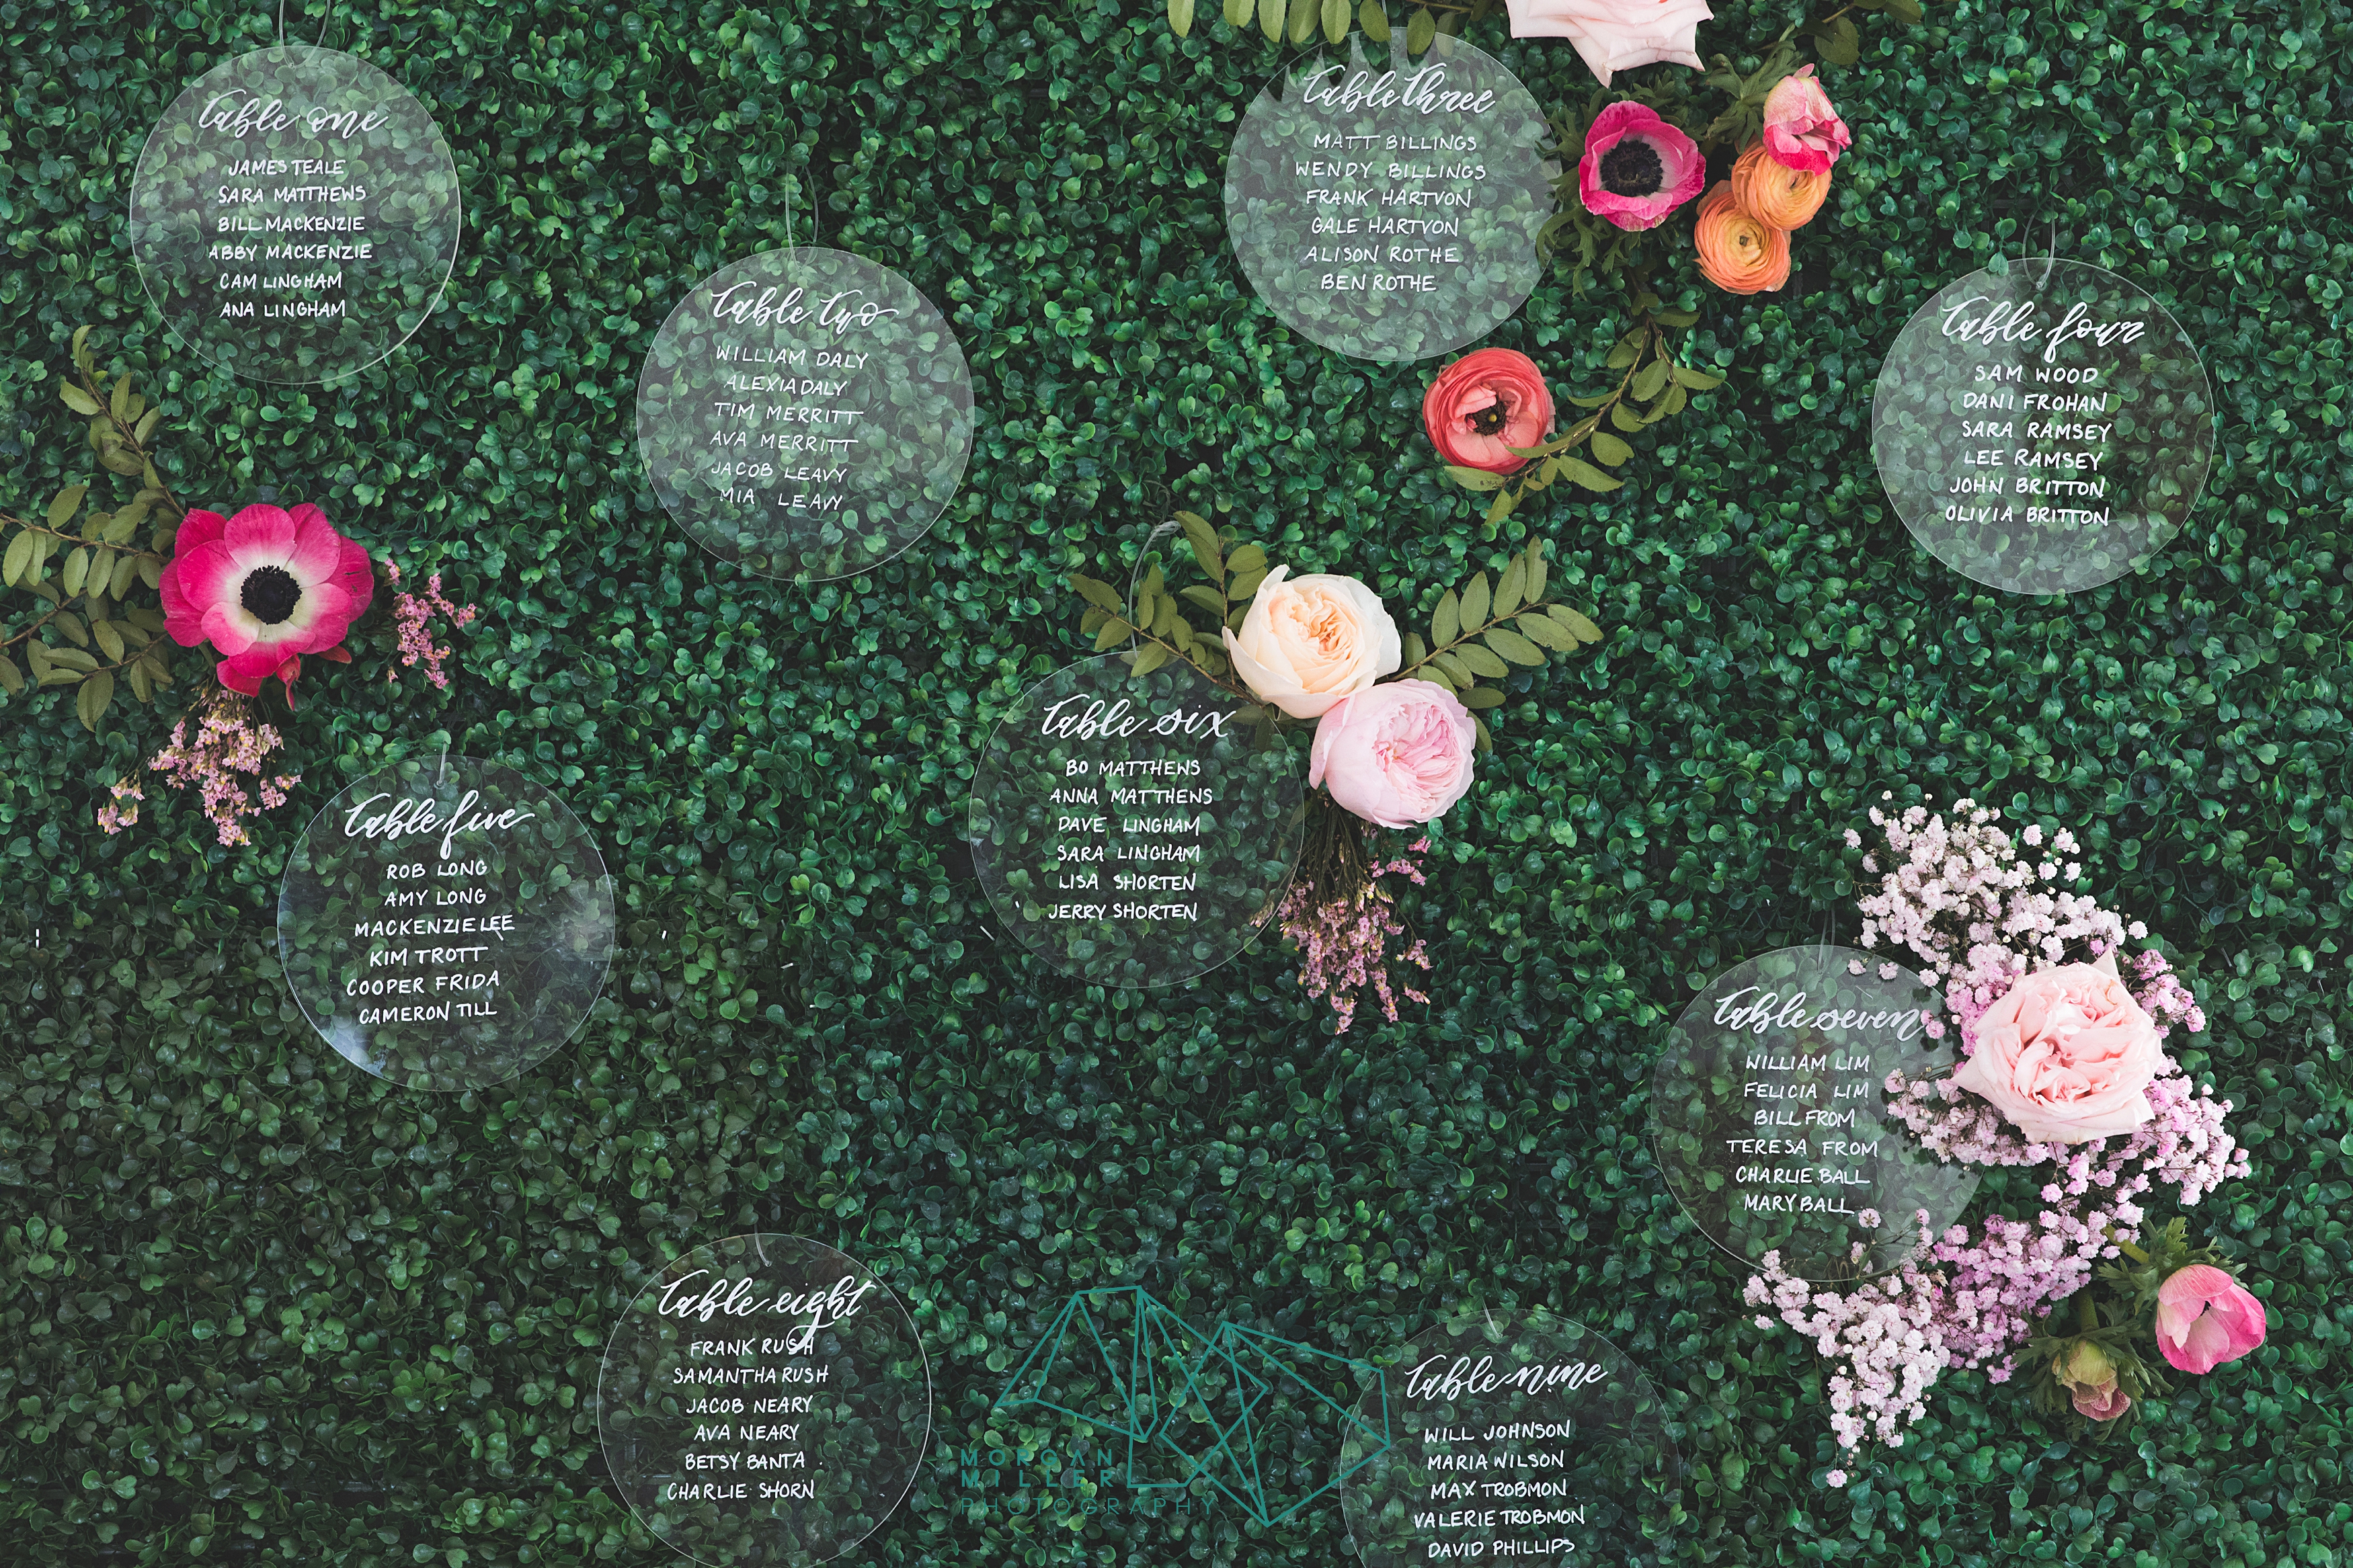 Table one
JAMES TEALE
SARA MATTHEWS
BILL MACKENZIE
ABBY MACKENZIE
CAM LINGHAM
ANA LINGHAM
Table two
WILLIAM DALY
ALEXIA DALY
TIM MERRITT
AVA MERRITT
JACOB LEAVY
MIA LEAVY
Table three
MATT BILLINGS
WENDY BILLINGS
FRANK HARTVON
GALE HARTVON
ALISON ROTHE
BEN ROTHE
Table four
SAM WOOD
DANI FROHAN
SARA RAMSEY
LEE RAMSEY
JOHN BRITTON
OLIVIA BRITTON
Table five
ROB LONG
AMY LONG
MACKENZIE LEE
KIM TROTT
COOPER FRIDA
CAMERON TILL
Table six
BO MATTHENS
ANNA MATTHENS
DAVE LINGHAM
SARA LINGHAM
LISA SHORTEN
JERRY SHORTEN
Table seven
WILLIAM LIM
FELICIA LIM
BILL FROM
TERESA FROM
CHARLIE BALL
MARY BALL
Table eight
FRANK RUSH
SAMANTHA RUSH
JACOB NEARY
AVA NEARY
BETSY BANTA
CHARLIE SHORN
Table nine
WILL JOHNSON
MARIA WILSON
MAX TROBMON
VALERIE TROBMON
DAVID PHILLIPS
MORGAN
MILLER
PHOTOGRAPHY